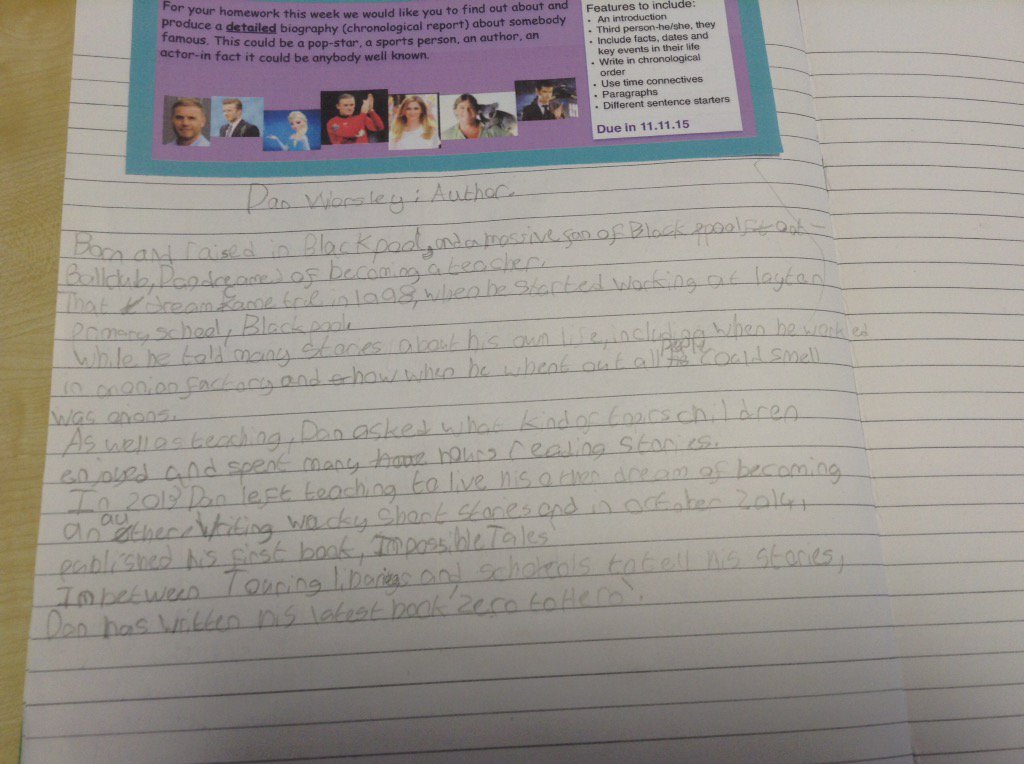 For your homework this week we would like you to find out about and
produce a detailed biography (chronological report) about somebody
famous. This could be a pop-star, a sports person, an author, an
actor-in fact it could be anybody well known.
Features to include:
• An introduction
• Third person-he/she, they
• Include facts, dates and
key events in their life
• Write in chronological
order
• Use time connectives
• Paragraphs
• Different sentence starters
Due in 11.11.15
Dan Worsley: Author.
Born and raised in Blackpool, and a massive fan of Black ppool
Ballclub, Dan dreamed of becoming a teacher.
That dream came true in 1998, when he started working at laytan
Primary school, Blackpool.
While he told many stories about his own life, including when he worked
in an onion factory and how when he whent out all people could smell
was onons.
As well as teaching, Dan asked what kind of topics children
enjoyed and spent many hours creating stories.
In 2013 Dan left teaching to live his other dream of becoming
an auther. Writing wacky short stories and in october 2014,
published his first book, Impossible Tales
Imbetween Touring libaries and schools to tell his stories,
Dan has written his latest book 'Zero to Hero'.